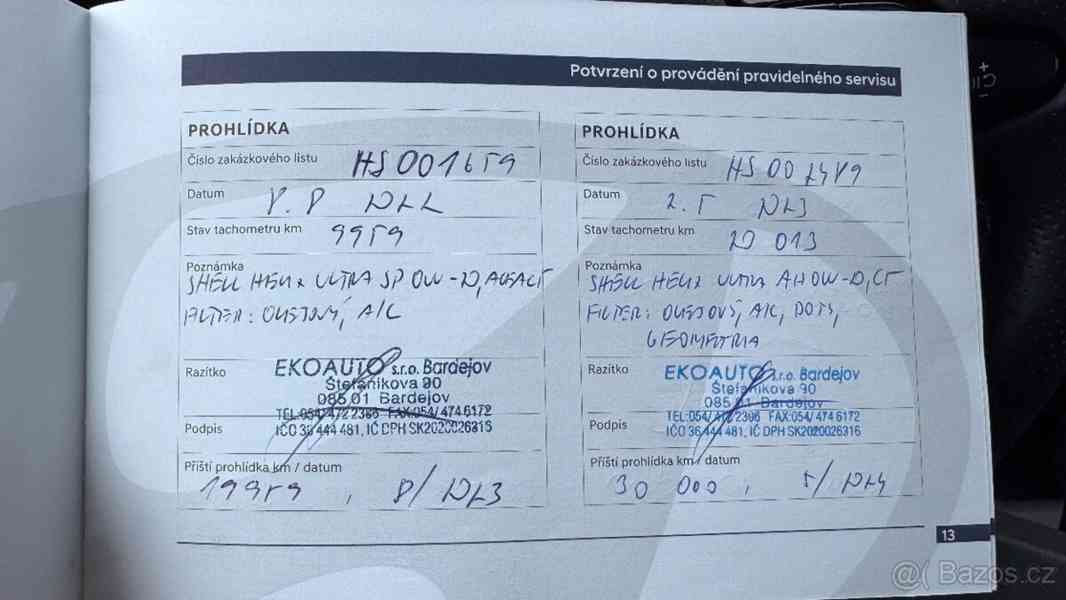 Potvrzení o provádění pravidelného servisu
PROHLÍDKA
Číslo zakázkového listu HS001659
Datum 8.8 2022
Stav tachometru km 9959
Poznámka
SHELL HELIX ULTRA SP 0W-20,
FILTER: OLEJOVÝ, A/C
Razítko
EKOAUTO s.r.o. Bardejov
Štefánikova 90
085 01 Bardejov
TEL:054/472 2366 FAX:054/474 6172
Podpis
IČO 36 444 481, IČ DPH SK2020026316
Příští prohlídka km / datum
19959, 8/2023
PROHLÍDKA
Číslo zakázkového listu HS00
Datum 2.5 2023
Stav tachometru km 20 013
Poznámka
SHELL HELIX ULTRA AH 0W-20,
FILTER: OLEJOVÝ, A/C, DOT5,
GEOMETRIA
Razítko
EKOAUTO s.r.o. Bardejov
Štefánikova 90
085 01 Bardejov
TEL:054/472 2366 FAX:054/474 6172
Podpis
IČO 36 444 481, IČ DPH SK2020026316
Příští prohlídka km / datum
30 000, 5/2024
13
@( Bazos.cz